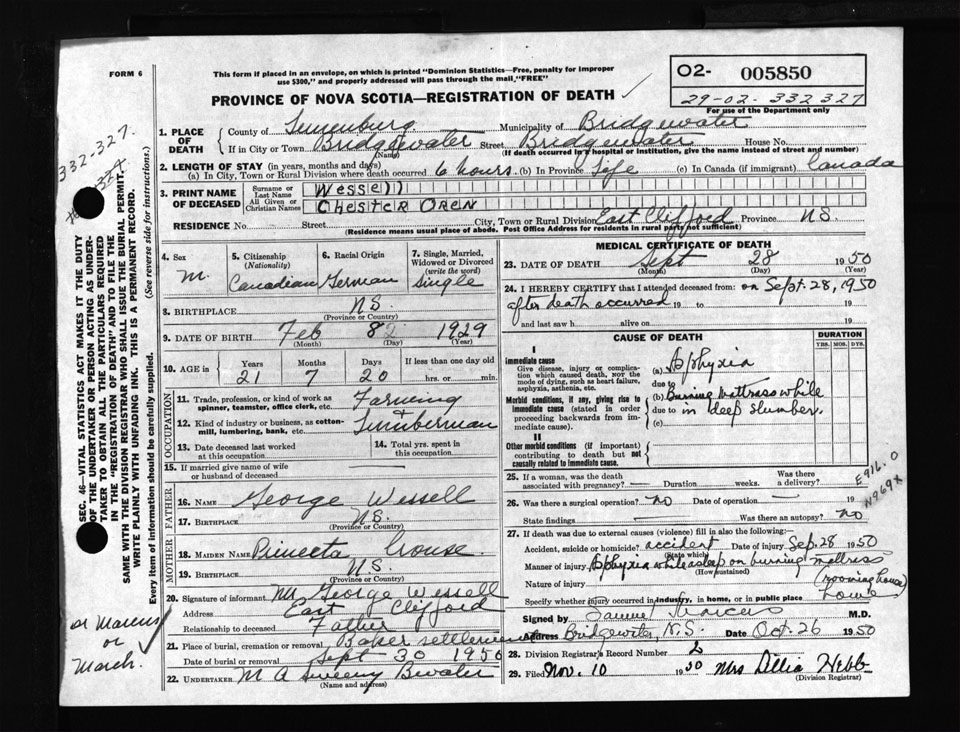 FORM 6
This form if placed in an envelope, on which is printed "Dominion Statistics—Free, penalty for improper
use $300," and properly addressed will pass through the mail "FREE"
PROVINCE OF NOVA SCOTIA—REGISTRATION OF DEATH
O2- 005850
29-02-332 327
For use of the Department only
1. PLACE OF DEATH
County of Lunenburg Municipality of Bridgewater
If in City or Town Bridgewater Street Bridgewater House No.
(Name) (If death occurred in a hospital or institution, give the name instead of street and number)
2. LENGTH OF STAY (in years, months and days)
(a) In City, Town or Rural Division where death occurred 6 hours (b) In Province Life (c) In Canada (if immigrant) Canada
3. PRINT NAME OF DECEASED
Surname or Last Name Wessell
All Given or Christian Names Chester Oren
RESIDENCE No. Street City, Town or Rural Division East Clifford Province N.S.
(Residence means usual place of abode. Post Office Address for residents in rural parts not sufficient)
4. Sex M.
5. Citizenship (Nationality) Canadian
6. Racial Origin German
7. Single, Married, Widowed or Divorced (write the word) Single
8. BIRTHPLACE N.S.
(Province or Country)
9. DATE OF BIRTH Feb 8 1929
(Month) (Day) (Year)
10. AGE in Years Months Days If less than one day old
21 7 20 hrs. or min.
OCCUPATION
11. Trade, profession, or kind of work as spinner, teamster, office clerk, etc. Farming
12. Kind of industry or business, as cotton-mill, lumbering, bank, etc. & Lumberman
13. Date deceased last worked at this occupation
14. Total yrs. spent in this occupation
15. If married give name of wife or husband of deceased
FATHER
16. NAME George Wessell
17. BIRTHPLACE N.S.
(Province or Country)
MOTHER
18. MAIDEN NAME Crouse
19. BIRTHPLACE N.S.
(Province or Country)
20. Signature of informant Mr George Wessell
Address East Clifford
Relationship to deceased Father
21. Place of burial, cremation or removal Baker settlement
Date of burial or removal Sept 30 1950
22. UNDERTAKER M A Sweeny Bwater
(Name and address)
MEDICAL CERTIFICATE OF DEATH
23. DATE OF DEATH Sept 28 1950
(Month) (Day) (Year)
24. I HEREBY CERTIFY that I attended deceased from: on Sept. 28, 1950
after death occurred 19 to 19
and last saw h alive on 19
CAUSE OF DEATH
DURATION
YRS. MOS. DYS.
I
Immediate cause
Give disease, injury or complication which caused death, not the mode of dying, such as heart failure, asphyxia, asthenia, etc.
(a) Asphyxia
due to
Morbid conditions, if any, giving rise to immediate cause (stated in order proceeding backwards from immediate cause).
(b) Burning mattress while
due to in deep slumber.
(c)
II
Other morbid conditions (if important) contributing to death but not causally related to immediate cause.
25. If a woman, was the death associated with pregnancy? — Duration weeks. Was there a delivery?
E916.0
N969x
26. Was there a surgical operation? no Date of operation — 19
State findings — Was there an autopsy? no
27. If death was due to external causes (violence) fill in also the following:
Accident, suicide or homicide? accident Date of injury Sep. 28 1950
(State which)
Manner of injury Asphyxia while asleep on burning mattress
(How sustained)
Nature of injury (rooming house)
Specify whether injury occurred in industry, in home, or in public place home
Signed by Samuel Marcus M.D.
Address Bridgewater, N.S. Date Oct. 26 1950
28. Division Registrar's Record Number 2
29. Filed Nov. 10 1950 Mrs Dillia Hebb
(Division Registrar)
SEC. 46—VITAL STATISTICS ACT MAKES IT THE DUTY
OF THE UNDERTAKER OR PERSON ACTING AS UNDER-
TAKER TO OBTAIN ALL THE PARTICULARS REQUIRED
IN THE "REGISTRATION OF DEATH" AND TO FILE THE
SAME WITH THE DIVISION REGISTRAR WHO SHALL ISSUE THE BURIAL PERMIT.
WRITE PLAINLY WITH UNFADING INK. THIS IS A PERMANENT RECORD.
Every item of information should be carefully supplied. (See reverse side for instructions.)
332-327.
or Marcus
or
March.